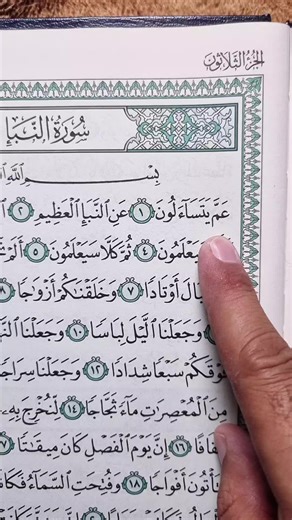 الجزء الثلاثون
سُورَةُ النَّبَإِ
بِسْمِ اللَّهِ
عَمَّ يَتَسَآءَلُونَ ١ عَنِ النَّبَإِ الْعَظِيمِ ٢
سَيَعْلَمُونَ ٤ ثُمَّ كَلَّا سَيَعْلَمُونَ ٥
أَوْتَادًا ٧ وَخَلَقْنَٰكُمْ أَزْوَٰجًا ٨
وَجَعَلْنَا الَّيْلَ لِبَاسًا ١٠ وَجَعَلْنَا
فَوْقَكُمْ سَبْعًا شِدَادًا ١٢ وَجَعَلْنَا سِرَاجًا
مِنَ الْمُعْصِرَٰتِ مَآءً ثَجَّاجًا ١٤ لِّنُخْرِجَ بِهِۦ
١٦ إِنَّ يَوْمَ الْفَصْلِ كَانَ مِيقَٰتًا ١٧
أَفْوَاجًا ١٨ وَفُتِحَتِ السَّمَآءُ